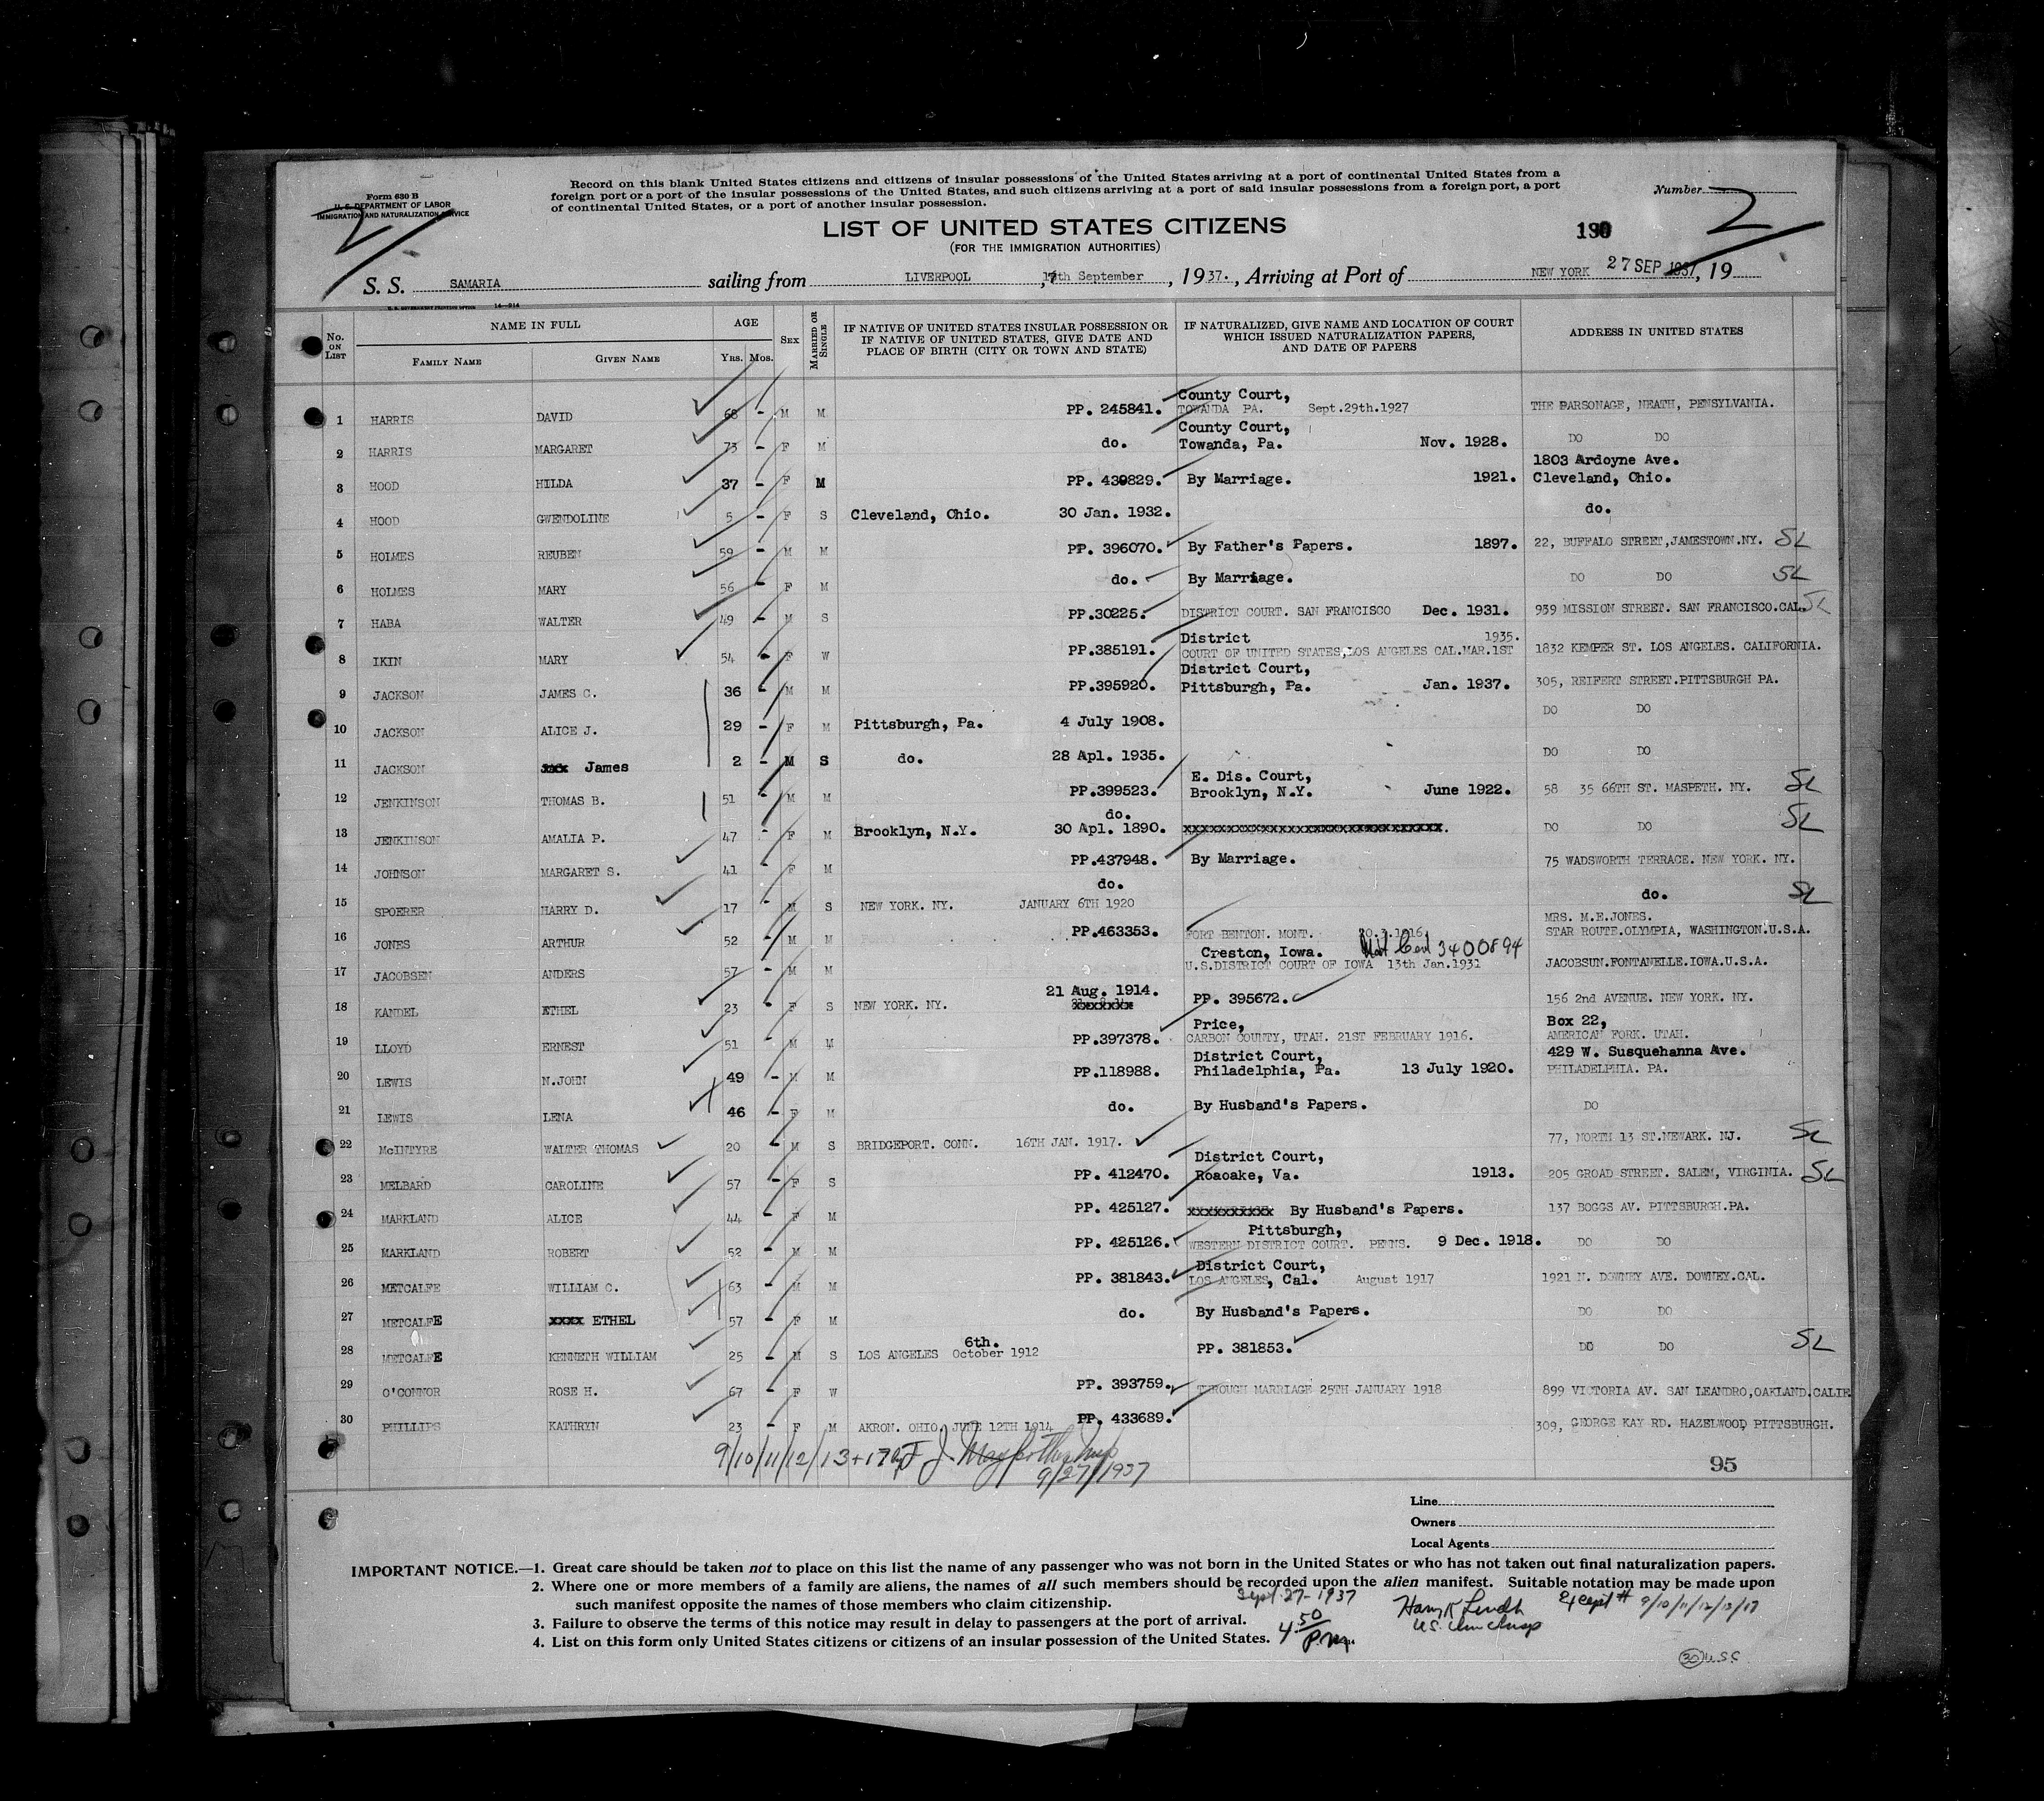 Form 630 B
U. S. DEPARTMENT OF LABOR
IMMIGRATION AND NATURALIZATION SERVICE
Record on this blank United States citizens and citizens of insular possessions of the United States arriving at a port of continental United States from a
foreign port or a port of the insular possessions of the United States, and such citizens arriving at a port of said insular possessions from a foreign port, a port
of continental United States, or a port of another insular possession.
Number 2
2
LIST OF UNITED STATES CITIZENS
(FOR THE IMMIGRATION AUTHORITIES)
S. S. SAMARIA sailing from LIVERPOOL, 17th September, 1937., Arriving at Port of NEW YORK 27 SEP 1937, 19
U. S. GOVERNMENT PRINTING OFFICE 14—214
No. ON LIST
NAME IN FULL
FAMILY NAME GIVEN NAME
AGE
YRS. MOS.
SEX
MARRIED OR SINGLE
IF NATIVE OF UNITED STATES INSULAR POSSESSION OR
IF NATIVE OF UNITED STATES, GIVE DATE AND
PLACE OF BIRTH (CITY OR TOWN AND STATE)
IF NATURALIZED, GIVE NAME AND LOCATION OF COURT
WHICH ISSUED NATURALIZATION PAPERS,
AND DATE OF PAPERS
ADDRESS IN UNITED STATES
County Court,
1 HARRIS DAVID 68 - M M PP. 245841. TOWANDA PA. Sept.29th.1927 THE PARSONAGE, NEATH, PENSYLVANIA.
County Court,
2 HARRIS MARGARET 73 - F M do. Towanda, Pa. Nov. 1928. DO DO
1803 Ardoyne Ave.
3 HOOD HILDA 37 - F M PP. 430829. By Marriage. 1921. Cleveland, Ohio.
4 HOOD GWENDOLINE 5 - F S Cleveland, Ohio. 30 Jan. 1932. do.
5 HOLMES REUBEN 59 - M M PP. 396070. By Father's Papers. 1897. 22, BUFFALO STREET,JAMESTOWN.NY. SL
6 HOLMES MARY 56 - F M do. By Marriage. DO DO SL
7 HABA WALTER 49 - M S PP.30225. DISTRICT COURT. SAN FRANCISCO Dec. 1931. 939 MISSION STREET. SAN FRANCISCO.CAL. SL
District 1935.
8 IKIN MARY 54 - F W PP.385191. COURT OF UNITED STATES,LOS ANGELES CAL.MAR.1ST 1832 KEMPER ST. LOS ANGELES. CALIFORNIA.
District Court,
9 JACKSON JAMES C. 36 - M M PP.395920. Pittsburgh, Pa. Jan. 1937. 305, REIFERT STREET.PITTSBURGH PA.
10 JACKSON ALICE J. 29 - F M Pittsburgh, Pa. 4 July 1908. DO DO
11 JACKSON xxx James 2 - M S do. 28 Apl. 1935. DO DO
E. Dis. Court,
12 JENKINSON THOMAS B. 51 - M M PP.399523. Brooklyn, N.Y. June 1922. 58 35 66TH ST. MASPETH. NY. SL
do.
13 JENKINSON AMALIA P. 47 - F M Brooklyn, N.Y. 30 Apl. 1890. xxxxxxxxxxxxxxxxxxxxxxxxxxxxxx. DO DO SL
14 JOHNSON MARGARET S. 41 - F M PP.437948. By Marriage. 75 WADSWORTH TERRACE. NEW YORK. NY.
do.
15 SPOERER HARRY D. 17 - M S NEW YORK. NY. JANUARY 6TH 1920 do. SL
MRS. M.E.JONES.
16 JONES ARTHUR 52 - M M PP.463353. FORT BENTON. MONT. 20.3.1916 STAR ROUTE.OLYMPIA, WASHINGTON.U.S.A.
Creston, Iowa. Nat Cert 3400894
17 JACOBSEN ANDERS 57 - M M U.S.DISTRICT COURT OF IOWA 13th Jan.1931 JACOBSUN.FONTANELLE.IOWA.U.S.A.
21 Aug. 1914.
18 KANDEL ETHEL 23 - F S NEW YORK. NY. xxxxxxx PP. 395672. 156 2nd AVENUE. NEW YORK. NY.
Price, Box 22,
19 LLOYD ERNEST 51 - M M PP.397378. CARBON COUNTY, UTAH. 21ST FEBRUARY 1916. AMERICAN FORK. UTAH.
District Court, 429 W. Susquehanna Ave.
20 LEWIS N.JOHN 49 - M M PP.118988. Philadelphia, Pa. 13 July 1920. PHILADELPHIA. PA.
21 LEWIS LENA 46 - F M do. By Husband's Papers. DO
22 McINTYRE WALTER THOMAS 20 - M S BRIDGEPORT. CONN. 16TH JAN. 1917. 77, NORTH 13 ST.NEWARK. NJ. SL
District Court,
23 MELBARD CAROLINE 57 - F S PP. 412470. Roaoake, Va. 1913. 205 GROAD STREET. SALEM, VIRGINIA. SL
24 MARKLAND ALICE 44 - F M PP. 425127. xxxxxxxxxx By Husband's Papers. 137 BOGGS AV. PITTSBURGH.PA.
Pittsburgh,
25 MARKLAND ROBERT 52 - M M PP. 425126. WESTERN DISTRICT COURT. PENNS. 9 Dec. 1918. DO DO
District Court,
26 METCALFE WILLIAM C. 63 - M M PP. 381843. LOS ANGELES, Cal. August 1917 1921 N. DOWNEY AVE. DOWNEY.CAL.
27 METCALFE xxxx ETHEL 57 - F M do. By Husband's Papers. DO DO
6th.
28 METCALFE KENNETH WILLIAM 25 - M S LOS ANGELES October 1912 PP. 381853. DO DO SL
29 O'CONNOR ROSE H. 67 - F W PP. 393759. THROUGH MARRIAGE 25TH JANUARY 1918 899 VICTORIA AV. SAN LEANDRO,OAKLAND.CALIF
30 PHILLIPS KATHRYN 23 - F M AKRON. OHIO. JUNE 12TH 1914 PP. 433689. 309, GEORGE KAY RD. HAZELWOOD, PITTSBURGH.
9/10/11/12/13+17 F J
9/27/1937
95
Line
Owners
Local Agents
IMPORTANT NOTICE.—1. Great care should be taken not to place on this list the name of any passenger who was not born in the United States or who has not taken out final naturalization papers.
2. Where one or more members of a family are aliens, the names of all such members should be recorded upon the alien manifest. Suitable notation may be made upon
such manifest opposite the names of those members who claim citizenship.
3. Failure to observe the terms of this notice may result in delay to passengers at the port of arrival.
4. List on this form only United States citizens or citizens of an insular possession of the United States.
Sept. 27-1937
4 50 P.M.
Harry K Lindh
U.S. Imm Insp
Except # 9/10/11/12/13/17
30 U.S.C.